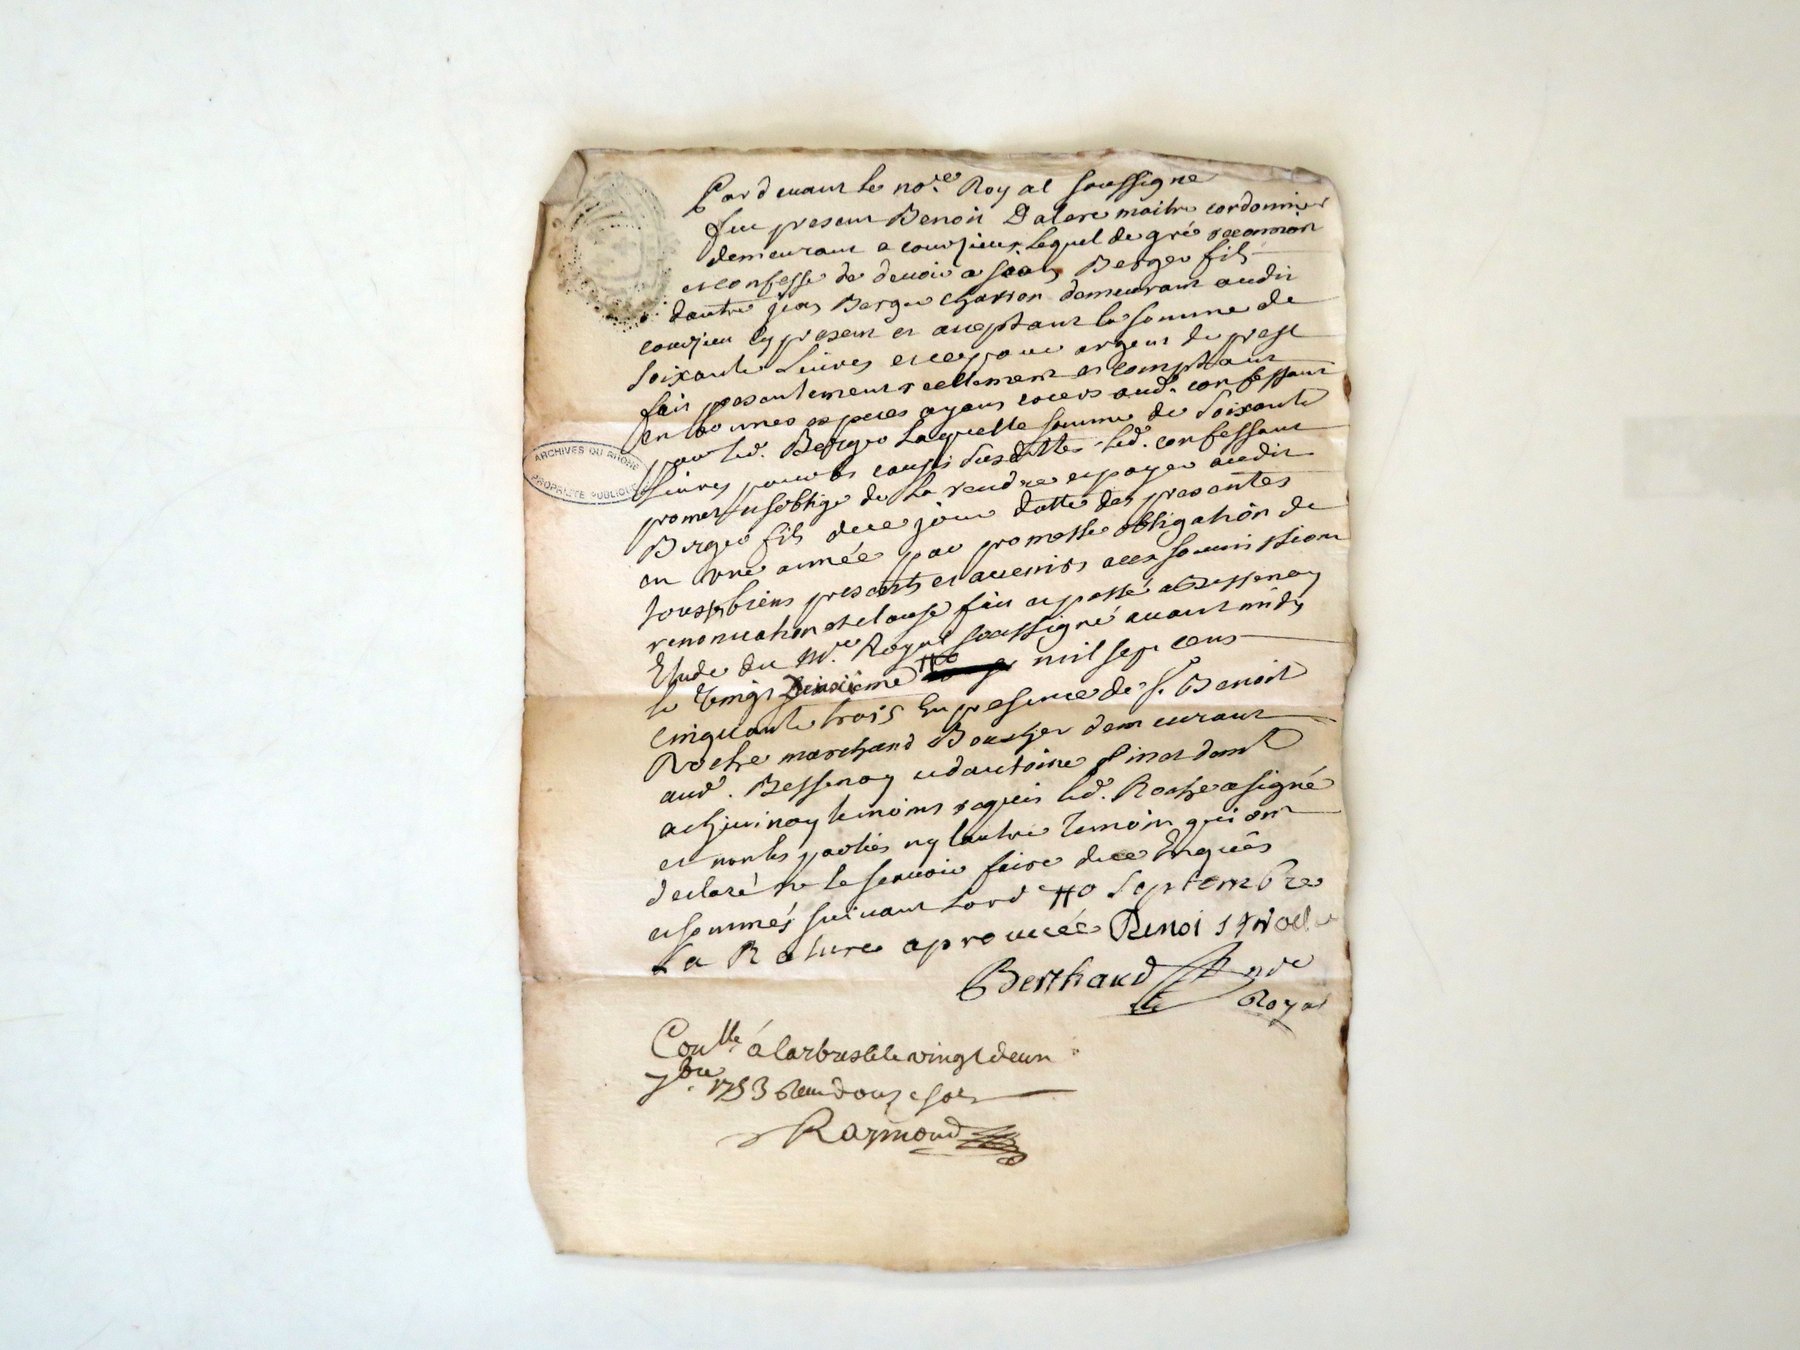 Pardeuant le no.re Royal soussigne
fut present Benoit Dalere maitre cordonnier
demeurant a courzieux lequel de gré reconnoit
et confesse de devoir a jean Berger fils
dautre jean Berger charron demeurant audit
courzieu cy present et aceptant la somme de
soixante Livres et ce pour argent de prest
fait presentement reellement et comptant
en bonnes especes ayant cours aud. confessant
par led. Berger laquelle somme de soixante
Livres pour les causes susdittes led. confessant
promet et soblige de la rendre et payer audit
Berger fils de ce jour datte des presentes
en une année par promesse obligation de
tous biens presents et avenirs avec soumission
renonciation et clause fait et passé a Bessenay
Etude du n.re Royal soussigné avant midy
le vingt Deuxieme mil sept cens
cinquante trois En presence de s. Benoit
Roche marchand Boucher demeurant
aud. Bessenay et dantoine pinat dem.t
a chevinay temoins requis led. Roche a signé
et non les parties ny lautre Temoin qui ont
declaré ne le scavoir faire de ce Enquis
et sommés suivant lord Septembre
La Rature aprouvée Benoit Roche
Berthaud n.re
Royal
ARCHIVES DU RHÔNE
PROPRIÉTÉ PUBLIQUE
Con.lle á Larbresle le vingt deux
7.bre 1753 Reçu douze sols
Raymond